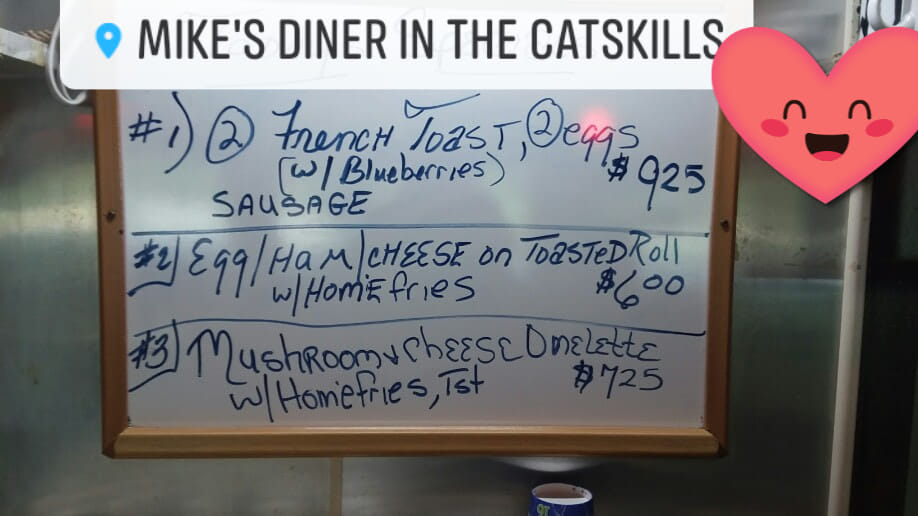 MIKE'S DINER IN THE CATSKILLS
#1) ② French Toast, ② eggs
(w/ Blueberries) $925
SAUSAGE
#2) Egg/HaM/CHEESE on ToasTeD Roll
w/Homefries $600
#3) MushRoom + CheeSe Omelette
w/Homefries, Tst $725